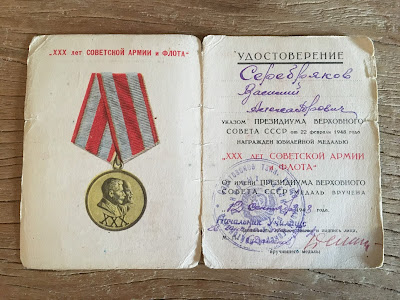 „XXX лет СОВЕТСКОЙ АРМИИ и ФЛОТА"
XXX
УДОСТОВЕРЕНИЕ
Серебряков
Василий
Александрович
УКАЗОМ ПРЕЗИДИУМА ВЕРХОВНОГО
СОВЕТА СССР от 22 февраля 1948 года
НАГРАЖДЕН ЮБИЛЕЙНОЙ МЕДАЛЬЮ
„XXX ЛЕТ СОВЕТСКОЙ АРМИИ
и ФЛОТА"
От имени ПРЕЗИДИУМА ВЕРХОВНОГО
СОВЕТА СССР МЕДАЛЬ ВРУЧЕНА
194 8 года
Начальник Училища
и подпись лица,
М. П.
вручившего медаль